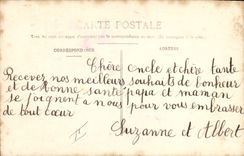 CARTE POSTALE
CORRESPONDANCE
ADRESSE
Chère oncle et chère tante
Recevez nos meilleurs souhaits de bonheur
et de bonne santé papa et maman
se joignent a nous pour vous embrasser
de tout cœur
Suzanne et Albert